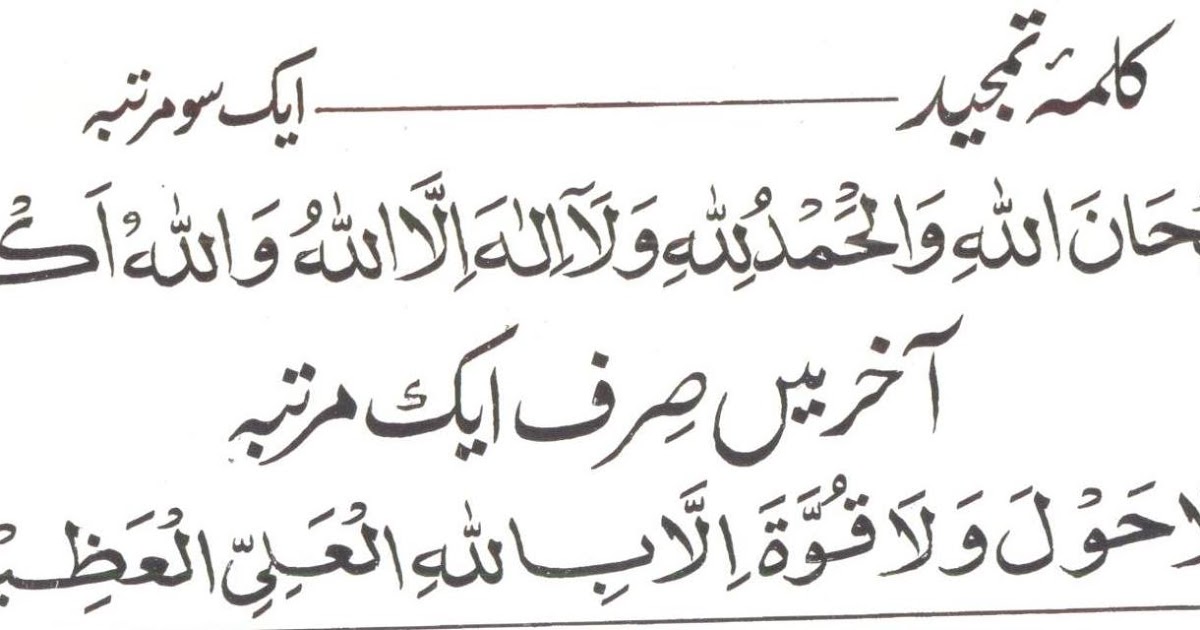 کلمۂ تمجید ایک سو مرتبہ
حَانَ اللهِ وَالْحَمْدُ لِلّٰهِ وَلَآ اِلٰهَ اِلَّا اللهُ وَاللهُ اَكْ
آخر میں صِرف ایک مرتبہ
لَا حَوْلَ وَلَا قُوَّةَ اِلَّا بِاللهِ الْعَلِيِّ الْعَظِيْ